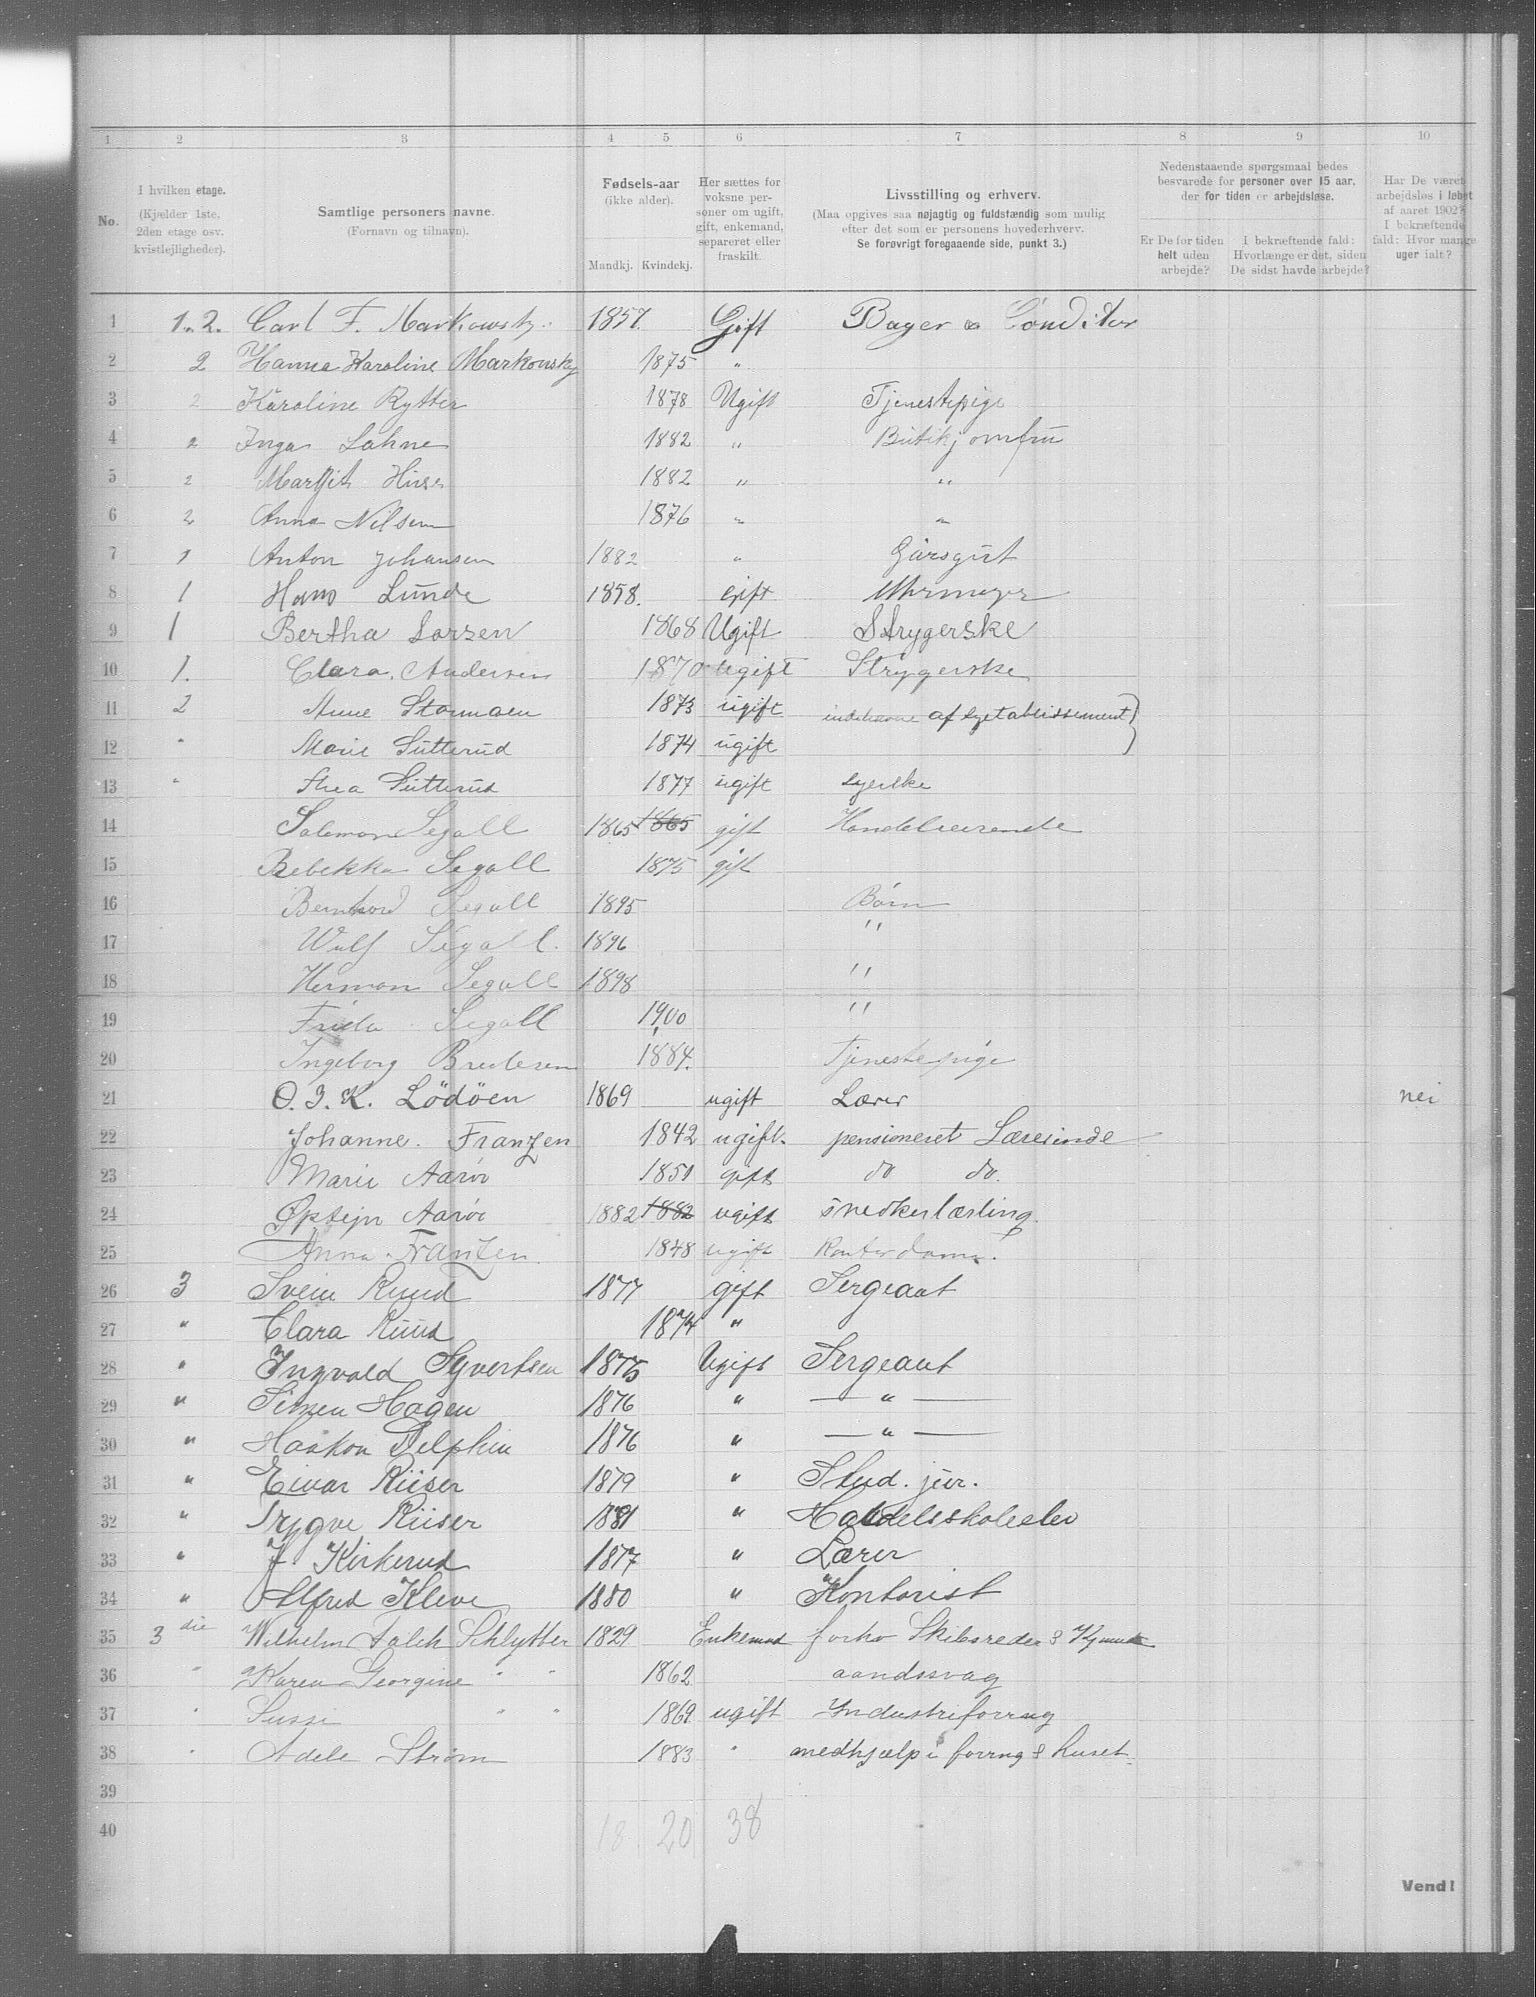 1 2 3 4 5 6 7 8 9 10
No.
I hvilken etage.
(Kjælder 1ste.
2den etage osv.
kvistlejligheder).
Samtlige personers navne.
(Fornavn og tilnavn).
Fødsels-aar
(ikke alder).
Mandkj. Kvindekj.
Her sættes for
voksne per-
soner om ugift,
gift, enkemand,
separeret eller
fraskilt.
Livsstilling og erhverv.
(Maa opgives saa nøjagtig og fuldstændig som mulig
efter det som er personens hovederhverv.
Se forøvrigt foregaaende side, punkt 3.)
Nedenstaaende spørgsmaal bedes
besvarede for personer over 15 aar,
der for tiden er arbejdsløse.
Er De for tiden
helt uden
arbejde?
I bekræftende fald:
Hvorlænge er det, siden
De sidst havde arbejde?
Har De været
arbejdsløs i løbet
af aaret 1902?
I bekræftende
fald: Hvor mange
uger ialt?
1 1.2. Carl F. Markowsky. 1857. Gift Bager & Conditor
2 2 Hanna Karoline Markowsky 1875 "
3 2 Karoline Rytter 1878 Ugift Tjenestepige
4 2 Inga Lohne 1882 " Butikjomfru
5 2 Margit Huse 1882 " "
6 2 Anna Nilsen 1876 " "
7 1 Anton Johansen 1882 " Gårsgut
8 1 Hans Lunde 1858. Gift Uhrmager
9 1 Bertha Larsen 1868 Ugift Strygerske
10 1. Clara Andersen 1870 Ugift Strygerske
11 2 Anne 1873 ugift af syetablissement }
12 " Marie Sutterud 1874 ugift
13 " Thea Sutterud 1877 ugift syerske
14 Salemon Segall 1865 1865 gift Handelsreisende
15 Rebekka Segall 1875 gift
16 Bernhard Segall 1895 Børn
17 Wulf Segall. 1896 "
18 Herman Segall 1898 "
19 Frida Segall 1900 "
20 Ingeborg Bredesen 1884. Tjenestepige
21 O. J. K. Lödöen 1869 ugift Lærer nei
22 Johanne. Franzen 1842 ugift. pensioneret Lærerinde
23 Marie Aarøe 1850 gift do do.
24 Øystejn Aarøe 1882 1882 ugift snedkerlærling.
25 Anna Franzen. 1848 ugift Kontordame.
26 3 Svein Ruud 1877 gift Sergeant
27 " Clara Ruud 1874 "
28 " Ingvald Syvertsen 1875 Ugift Sergeant
29 " Simen Hagen 1876 " — " —
30 " Haakon Delphin 1876 " — " —
31 " Eivar Riiser 1879 " Stud. jur.
32 " Trygve Riiser 1881 " Handelsskoleelev
33 " J. Kirkerud 1877 " Lærer
34 " Alfred Kleve 1880 " Kontorist
35 3die Wilhelm Falch Schlytter 1829 Enkemand forhv Skibsreder &
36 " Karen Georgine " " 1862 aandssvag
37 " Sussi " " 1869 ugift Industriforrtng
38 " Adele Strøm 1883 " medhjælp i forrtng & huset.
39
40
18 20 38
Vend!